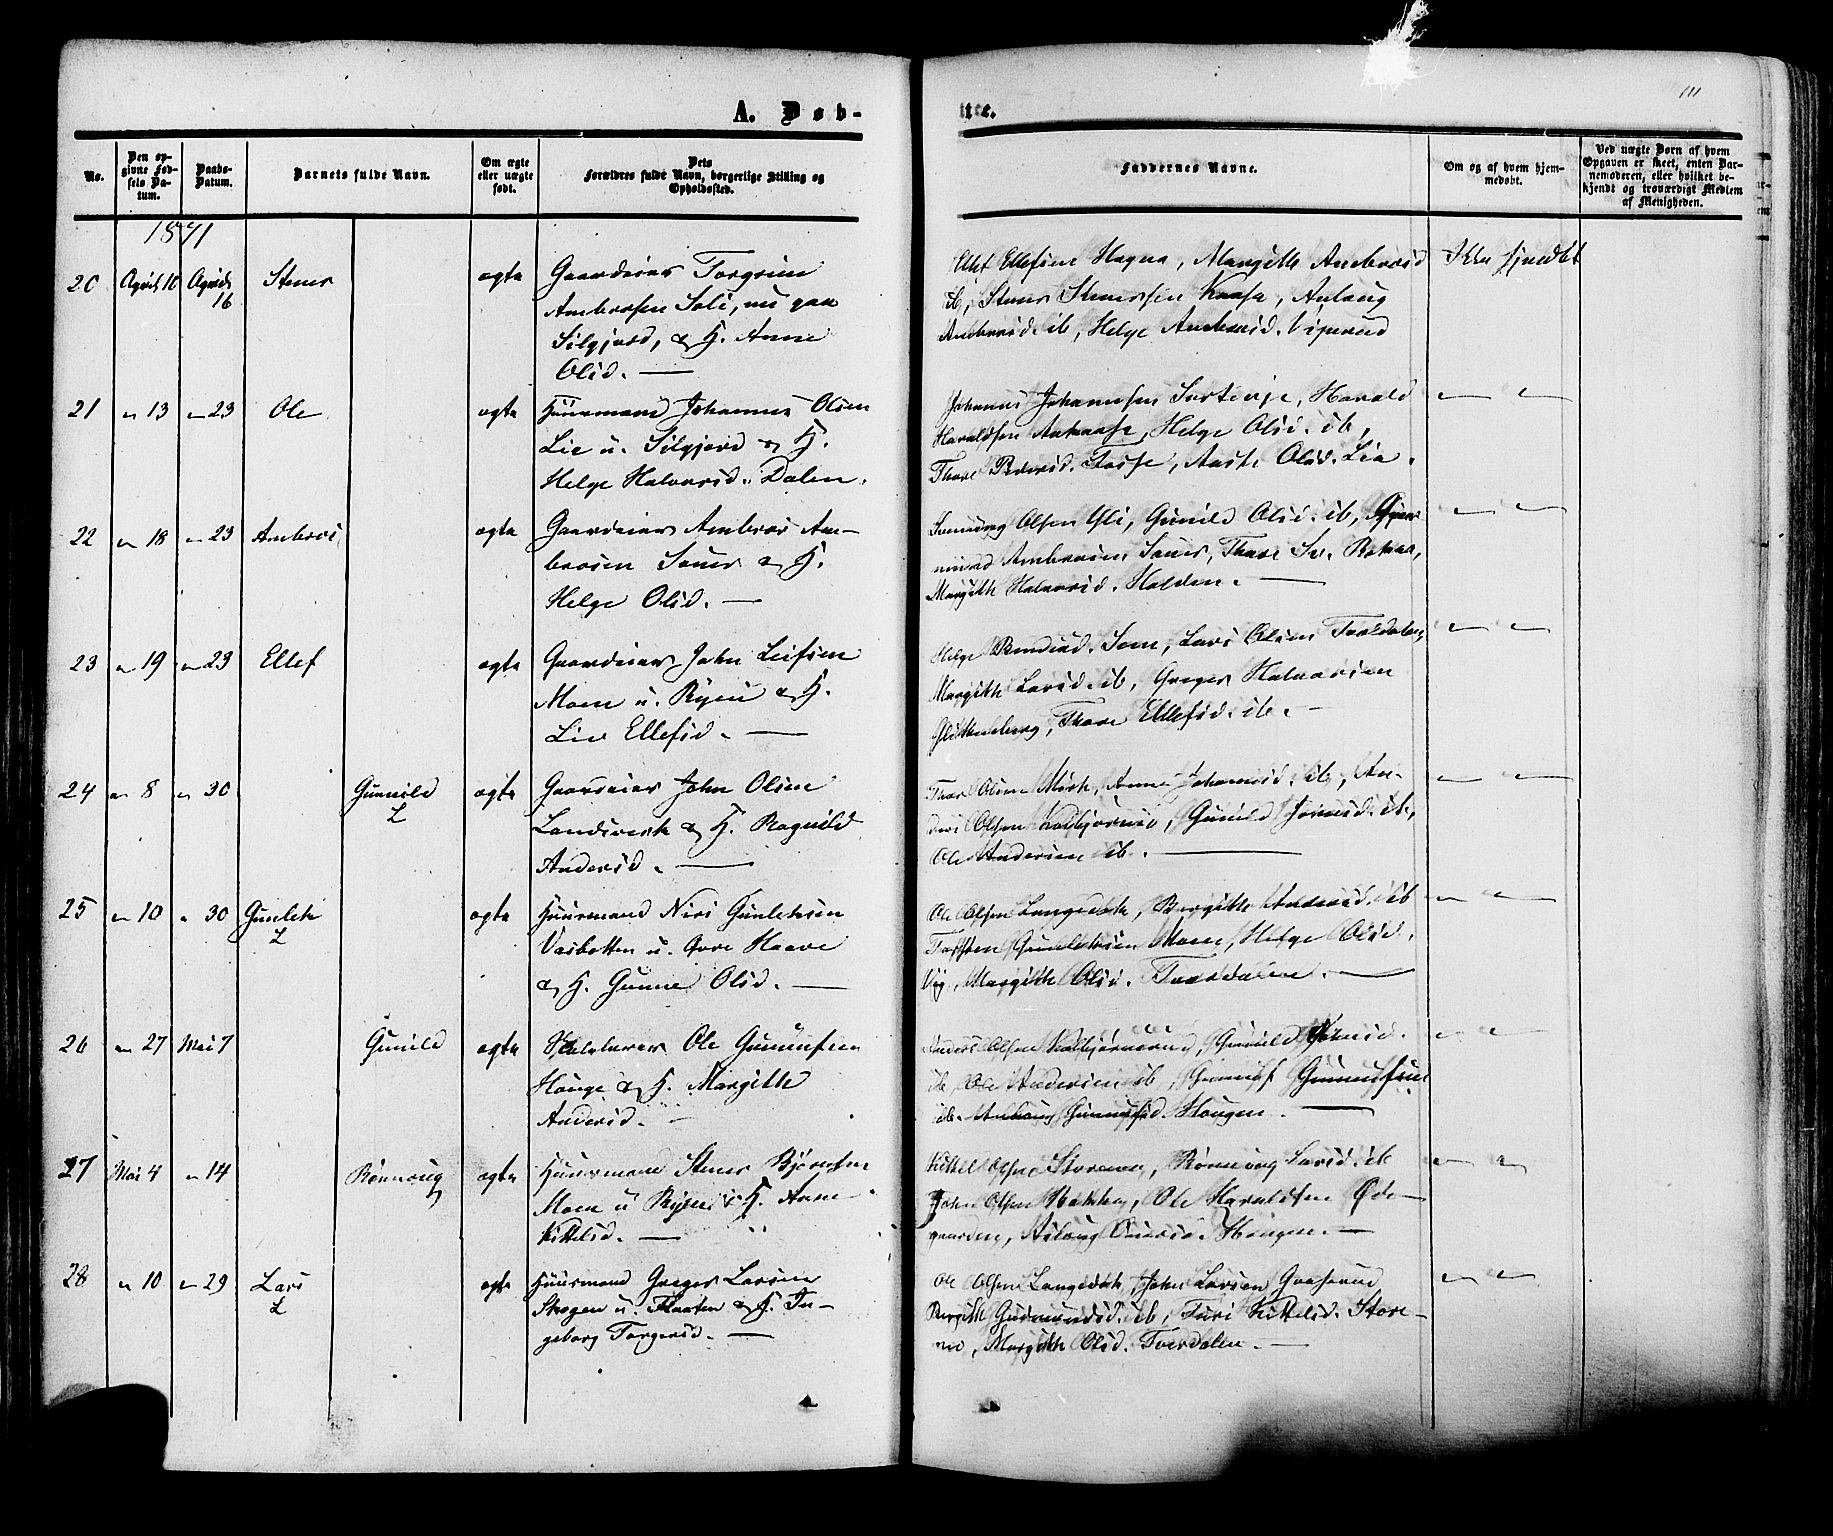 A. Døb-
te.
111
No.
Den op-
givne Fød-
sels Da-
tum.
Daabs-
Datum.
Barnets fulde Navn.
Om ægte
eller uægte
født.
Dets
Forældres fulde Navn, borgerlige Stilling og
Opholdssted.
Faddernes Navne.
Om og af hvem hjem-
medøbt.
Ved uægte Børn af hvem
Opgaven er skeet, enten Bar-
nemoderen, eller hvilket be-
kjendt og troværdigt Medlem
af Menigheden.
1871
20 April 10 April 16 Stener ægte
Gaardeier Torgrim
Ambrosen Soli, nu paa
Silgjord, & H. Anne
Olsd. —
Ellef Ellefsen Hagna, Margith Ambrosd
ib, Stener Stenersen Kaasa, Anlaug
Ambrosd. ib, Helge Ambrosd. Viperud
Ikke hjmdbt
21 " 13 " 23 Ole ægte
Huusmand Johannes Olsen
Lie u. Silgjord & H.
Helge Halvorsd. Dalen.
Johannes Johannesen, Harald
Haraldsen, Helge Olsd. ib,
Thore Pedersd., Aaste Olsd. Lia.
" "
22 " 18 " 23 Ambros ægte
Gaardeier Ambros Am-
brosen Sauer & H.
Helge Olsd. —
Olsen Gunild Olsd. ib,
Ambrosen Sauer, Thore
Margith Halvorsd. Holden. —
" "
23 " 19 " 23 Ellef ægte
Gaardeier John Leifsen
Moen u. Ryen & H.
Liv Ellefsd. —
Helge Lars Olsen Tveldalen,
Margith Larsd. ib, Greger Halvorsen
Thore Ellefsd. ib. —
" "
24 " 8 " 30 Gunnild ægte
L
Gaardeier John Olsen
Landsverk & H. Ragnild
Andersd. —
Thor Olsen Anne Johannesd. ib, An-
ders Olsen Kolbjørnrud, Gunild ib,
Ole Andersen ib. —
" "
25 " 10 " 30 Gunlek ægte
L
Huusmand Niri Gunleksen
Vasbotten u. Haave
& H. Gunne Olsd. —
Ole Olsen Langedrk, Bergith Andersd. ib
Torsten Gunleksen Moen, Helge Olsd.
Vig, Margith Olsd. Tverdalen. —
" "
26 " 27 Mai 7 Gunild ægte
Ole Gunnufsen
Hauge & H. Margith
Andersd. —
Anders Olsen Kolbjørnrud, Gunild
ib, Ole Andersen ib, Gunnuf Gunnufsen
ib. Anlaug Gunnufsd. Haugen. —
" "
27 Mai 4 " 14 Rønnoug ægte
Huusmand Stener Bjørnsen
Moen u Ryen & H. Anne
Kittelsd. —
Kittel Olsen Storemo, Rønnoug Larsd. ib
John Olsen Bakken, Ole Haraldsen Øde-
gaarden, Aslaug Haugen. —
" "
28 " 10 " 29 Lars ægte
L
Huusmand Greger Larsen
Skogen u. Flaaten & H. In-
geborg Torgersd. —
Ole Olsen Langedrk, John Larsen Graserud
Bergith Gudmundsd. ib, Turi Kittelsd. Store-
mo, Margith Olsd. Tverdalen. —
" "